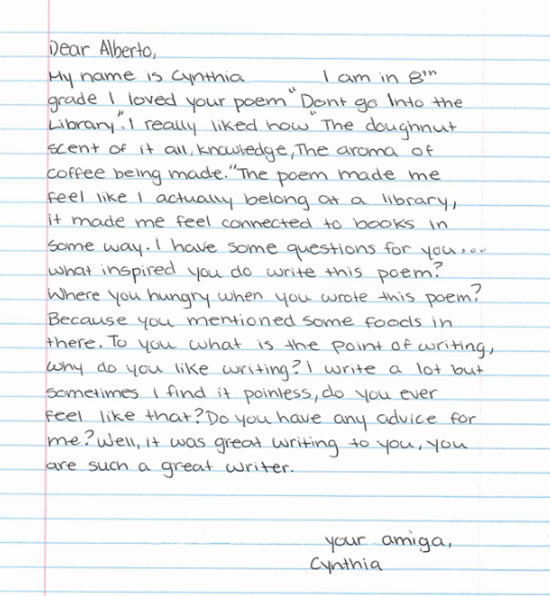 Dear Alberto,
My name is Cynthia I am in 8th
grade I loved your poem "Dont go Into the
Library". I really liked how "The doughnut
scent of it all, knowledge, The aroma of
coffee being made." The poem made me
feel like I actually belong at a library,
it made me feel connected to books in
some way. I have some questions for you....
what inspired you do write this poem?
Where you hungry when you wrote this poem?
Because you mentioned some foods in
there. To you what is the point of writing,
why do you like writing? I write a lot but
sometimes I find it pointless, do you ever
feel like that? Do you have any advice for
me? Well, it was great writing to you, you
are such a great writer.
your amiga,
Cynthia